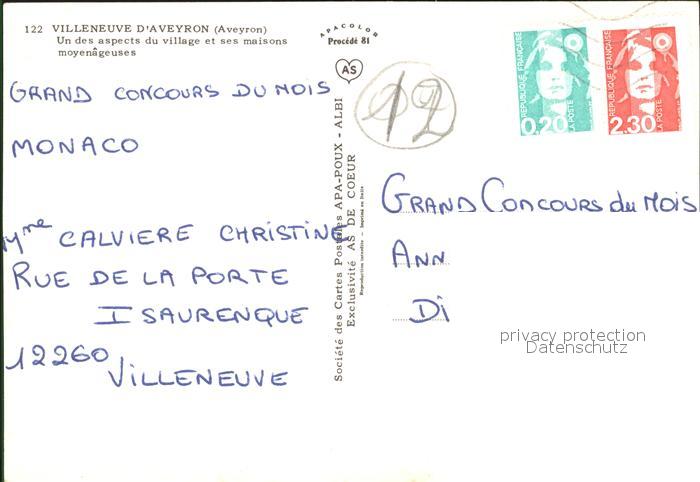 122 VILLENEUVE D'AVEYRON (Aveyron)
Un des aspects du village et ses maisons
moyenâgeuses
APACOLOR
Procédé 81
AS
GRAND CONCOURS DU MOIS
MONACO
Mme CALVIERE CHRISTINE
RUE DE LA PORTE
ISAURENQUE
12260
VILLENEUVE
Société des Cartes Postales APA-POUX - ALBI
Exclusivité AS DE COEUR
Reproduction interdite - Imprimé en Italie
12
REPUBLIQUE FRANÇAISE
0,20
LA POSTE
REPUBLIQUE FRANÇAISE
2,30
LA POSTE
GRAND CONCOURS du MOIS
ANN
Di
privacy protection
Datenschutz